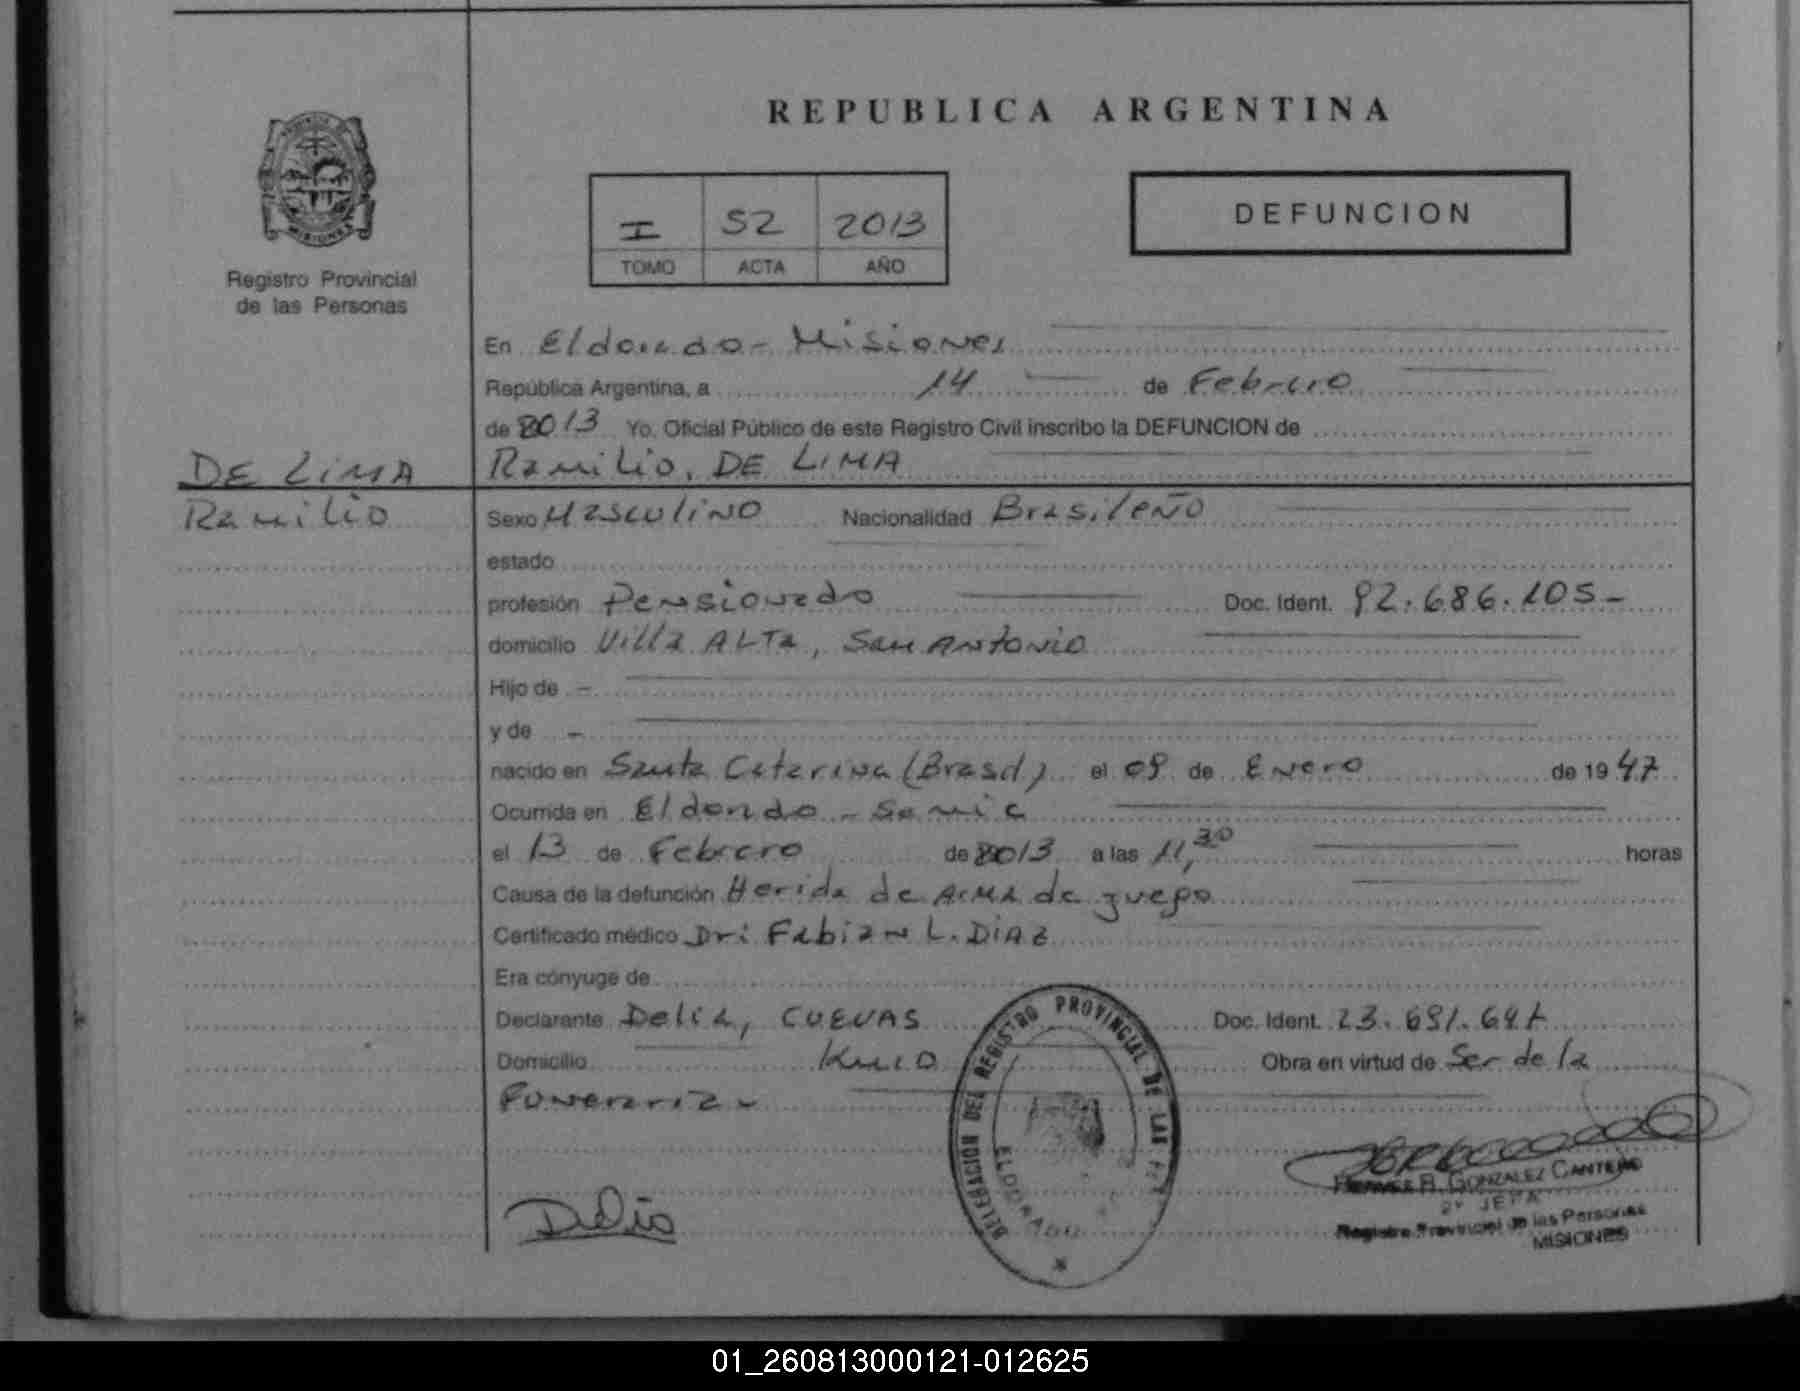 REPUBLICA ARGENTINA
PROVINCIA DE
MISIONES
Registro Provincial
de las Personas
I 52 2013
TOMO ACTA AÑO
DEFUNCION
En Eldorado - Misiones
República Argentina, a 14 de Febrero
de 2013 Yo, Oficial Público de este Registro Civil inscribo la DEFUNCION de
DE LIMA
Ramilio
Ramilio, DE LIMA
Sexo Masculino Nacionalidad Brasileño
estado
profesión Pensionado Doc. Ident. 92.686.105-
domicilio Villa ALTA, San ANTONIO
Hijo de -
y de -
nacido en Santa Catarina (Brasil) el 09 de Enero de 1947
Ocurrida en Eldorado - Samic
el 13 de Febrero de 2013 a las 11,30 horas
Causa de la defunción Herida de Arma de fuego
Certificado médico Dr: Fabian L. DIAZ
Era cónyuge de
Declarante Delia, CUEVAS Doc. Ident. 23.691.641
Domicilio Km 10 Obra en virtud de Ser de la
Funeraria -
DELEGACION DEL REGISTRO PROVINCIAL DE LAS
ELDORADO
Delia
R. GONZALEZ CANTERO
JEFA
Registro Provincial de las Personas
MISIONES
01_260813000121-012625